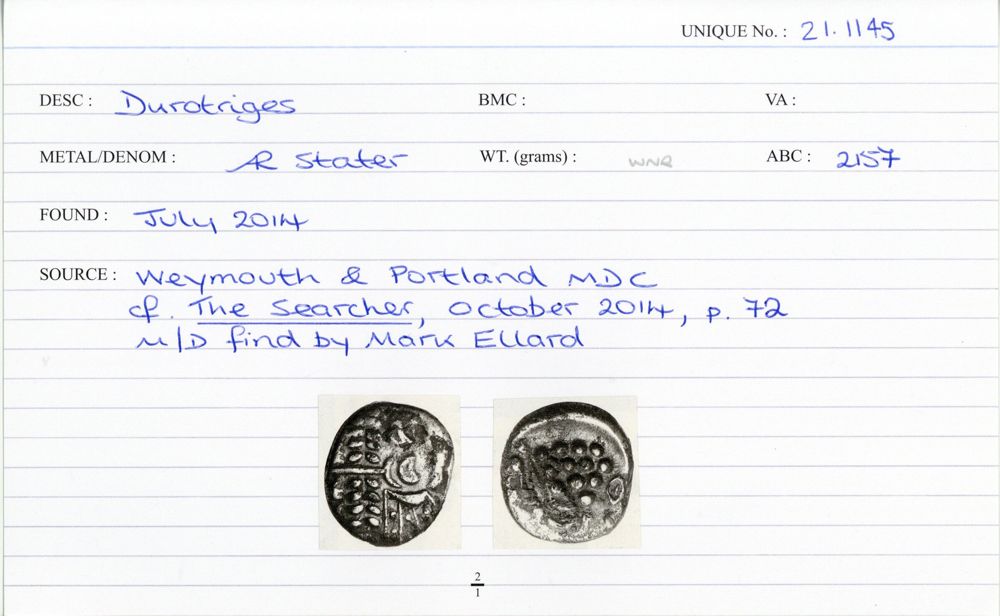 UNIQUE No. : 21.1145
DESC : Durotriges BMC : VA :
METAL/DENOM : AR Stater WT. (grams) : WNR ABC : 2157
FOUND : July 2014
SOURCE : Weymouth & Portland MDC
cf. The Searcher, October 2014, p. 72
M/D find by Mark Ellard
2
1